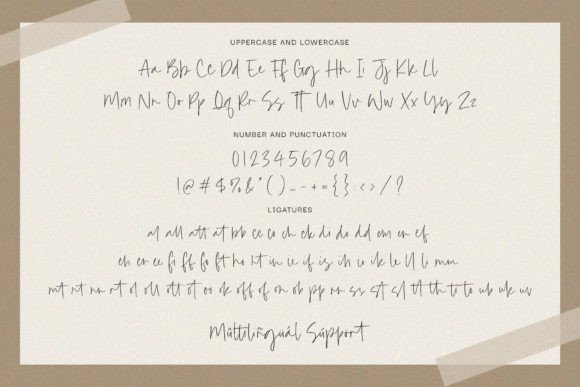 UPPERCASE AND LOWERCASE
Aa Bb Cc Dd Ee Ff Gg Hh Ii Jj Kk Ll
Mm Nn Oo Pp Qq Rr Ss Tt Uu Vv Ww Xx Yy Zz
NUMBER AND PUNCTUATION
0123456789
!@#$%&*()_-+={}:<>/?
LIGATURES
al all att at bb cc co ch ck di do dd em en ef
eh er ee fi ff fo ft ho ht in ie if is ih io ik le ll li mm
mt nt nn rt ol oll ott ot oo ok off of on ob pp rr ss st sl tl tt th ti to ub uk uv
Múltilíñgúál Súppórt